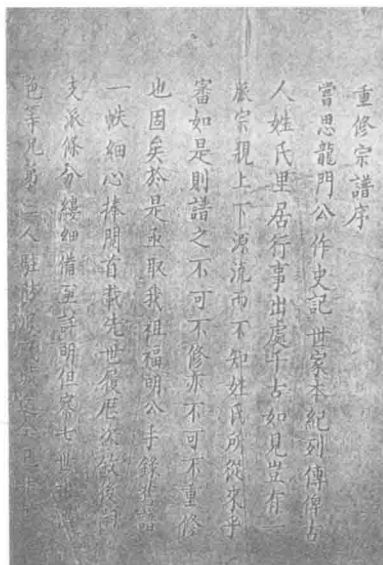 重修宗譜序
嘗思龍門公作史記世家本紀列傳俾古
人姓氏里居行事出處千古如見豈有一
脈宗親上下源流而不知姓氏所從來乎
審如是則譜之不可不修亦不可不重修
也固矣於是亟取我祖福明公手錄舊譜
一帙細心捧閱首載先世履歷次敘後向
支派條分縷細備至詳明但察七世
色等兄弟三人駐